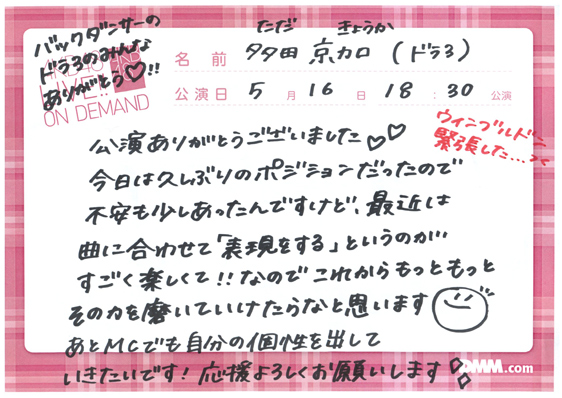 バックダンサーの
ドラ3のみんな
ありがとう♡!!
AKB48
LIVE!!
ON DEMAND
ただ きょうか
名前 多田 京加 (ドラ3)
公演日 5月16日 18:30 公演
ウィンブルドン
緊張した...
公演ありがとうございました♡♡
今日は久しぶりのポジションだったので
不安も少しあったんですけど、最近は
曲に合わせて「表現をする」というのが
すごく楽しくて!!なのでこれからもっともっと
その力を磨いていけたらなと思います
あとMCでも自分の個性を出して
いきたいです!応援よろしくお願いします
DMM.com